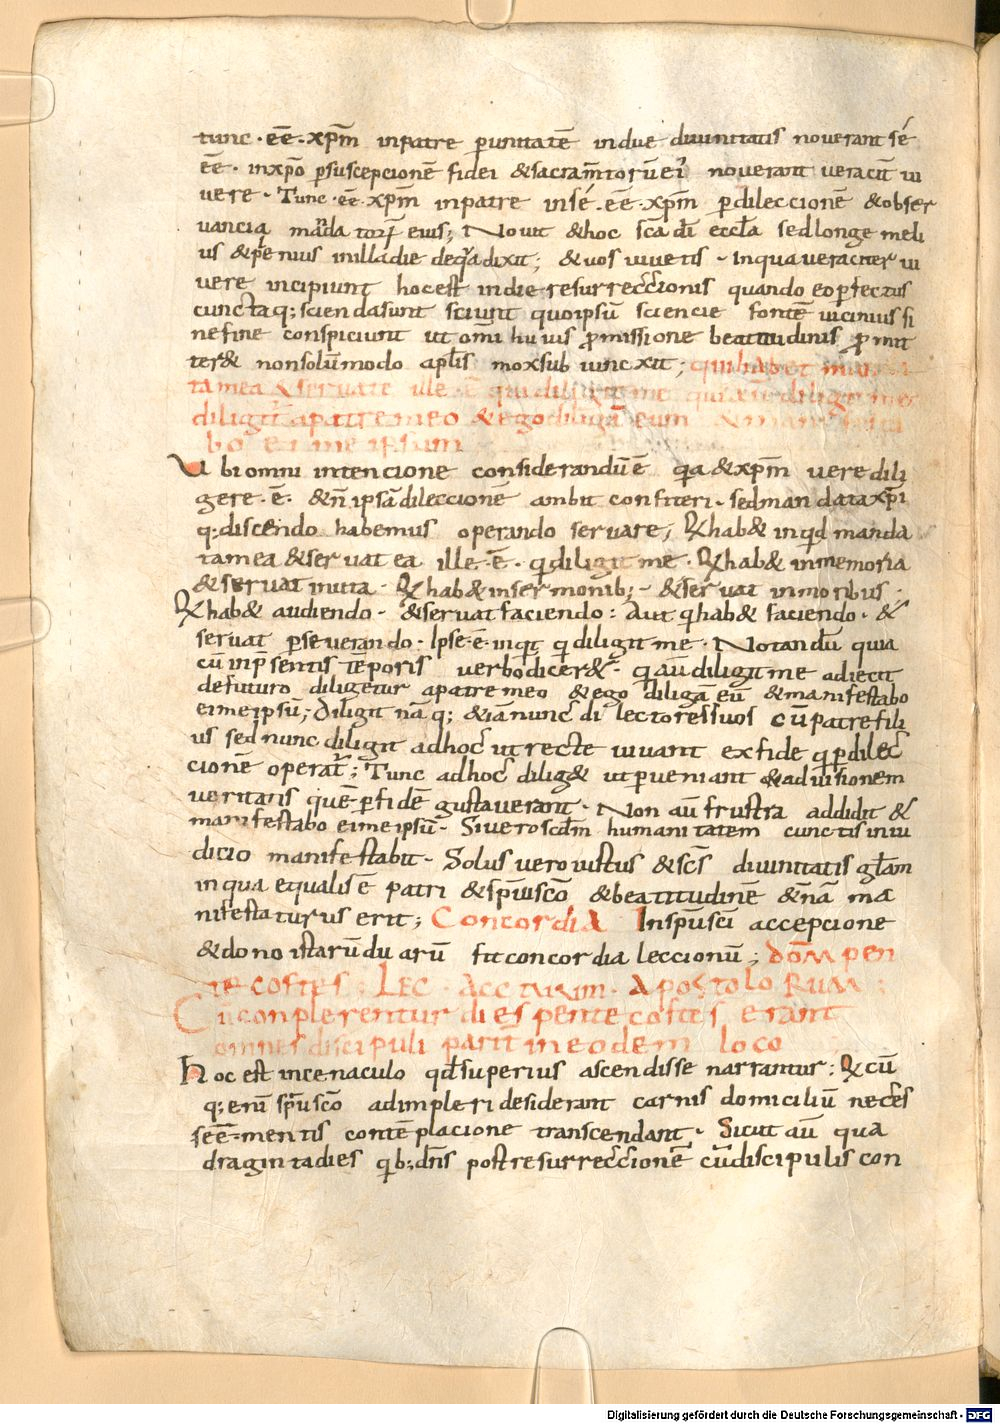 tunc · ēē · xp̄m inpatre p unitatē indue diuinitatis nouerant sé
ēē · inxp̄o p suscepcionē fidei & sacram̄torū ei' nouerant ueracit̄ ui
uere · Tunc · ēē · xp̄m inpatre insé · ēē · xp̄m p dileccionē & obser
uancia mandatorꝝ eius; Nouit & hoc sc̄a dī eccl̄a sed longe meli
us & plenius inilladie deqᷓ dixit; & uos uiuetis · Inqua ueraciter ui
uere incipiunt hocest indie resurreccionis quando eo pfectius
cunctaq; sciendasunt sciunt quoipsū sciencie fontē uicinius si
nefine conspiciunt ut om̄i huius p̄missione beatitudinis p̄mit
ter& nonsolū modo apl̄is moxsubiuncxit; qui habet manda
tamea & seruat ille · ē · qui diligit me qui aū diligit me
diligit̄ apatremeo & ego diligā eum & manifesta
bo ei me ipsum
Vbi omni intencione considerandū ē qᷓa & xp̄m uere dili
gere · ē · & n̄ ipsā dileccionē ambit confiteri · sed mandata xp̄i
q; discendo habemus operando seruare; Q hab& inqd manda
tamea & seruat ea ille · ē · q diligit me · Q hab& inmemoria
& seruat inuita · Q hab& insermonib; · & seruat inmoribus ·
Q hab& audiendo · & seruat faciendo : Aut q hab& faciendo · &
seruat p seuerando · Ipse · ē · inqt q diligit me · Notandū quia
cū inp̄sentis tēporis uerbo dicer& · q aū diligit me adiecit
defuturo diligetur apatremeo & ego diligā eū & manifestabo
eimeipsū; Diligit nāq; & iā nunc dī lectoressuos cū patre fili
us sed nunc diligit adhoc ut recte uiuant exfide q p dilec
cionē operat̄; Tunc adhoc dilig& ut pueniant & aduisionem
ueritatis quē p fidē gustauerant · Non aū frustra addidit &
manifestabo eimeipsū · Siue roscdm humanitatem cunctis iniu
dicio manifestabit · Solus uero iustus & sc̄s diuinitatis gl̄am
inqua equalis ē patri & sp̄uisc̄o & beatitudinē & n̄ā ma
nifestaturus erit; Concordia Insp̄usc̄i accepcione
& dono istarū duarū fit concordia leccionū; dōm pen
tecostes · Lec · Actuum · Apostolorum;
Cū conplerentur dies pentecostes erant
omnes discipuli parit̄ ineodem loco
Hoc est incenaculo qd superius ascendisse narrantur: Q cū
q; enī sp̄usc̄o adimpleri desiderant carnis domiciliū neces
seē · mentis contēplacione transcendant · Sicut aū qua
draginta dies qb; dn̄s post resurreccionē cū discipulis con
Digitalisierung gefördert durch die Deutsche Forschungsgemeinschaft - DFG